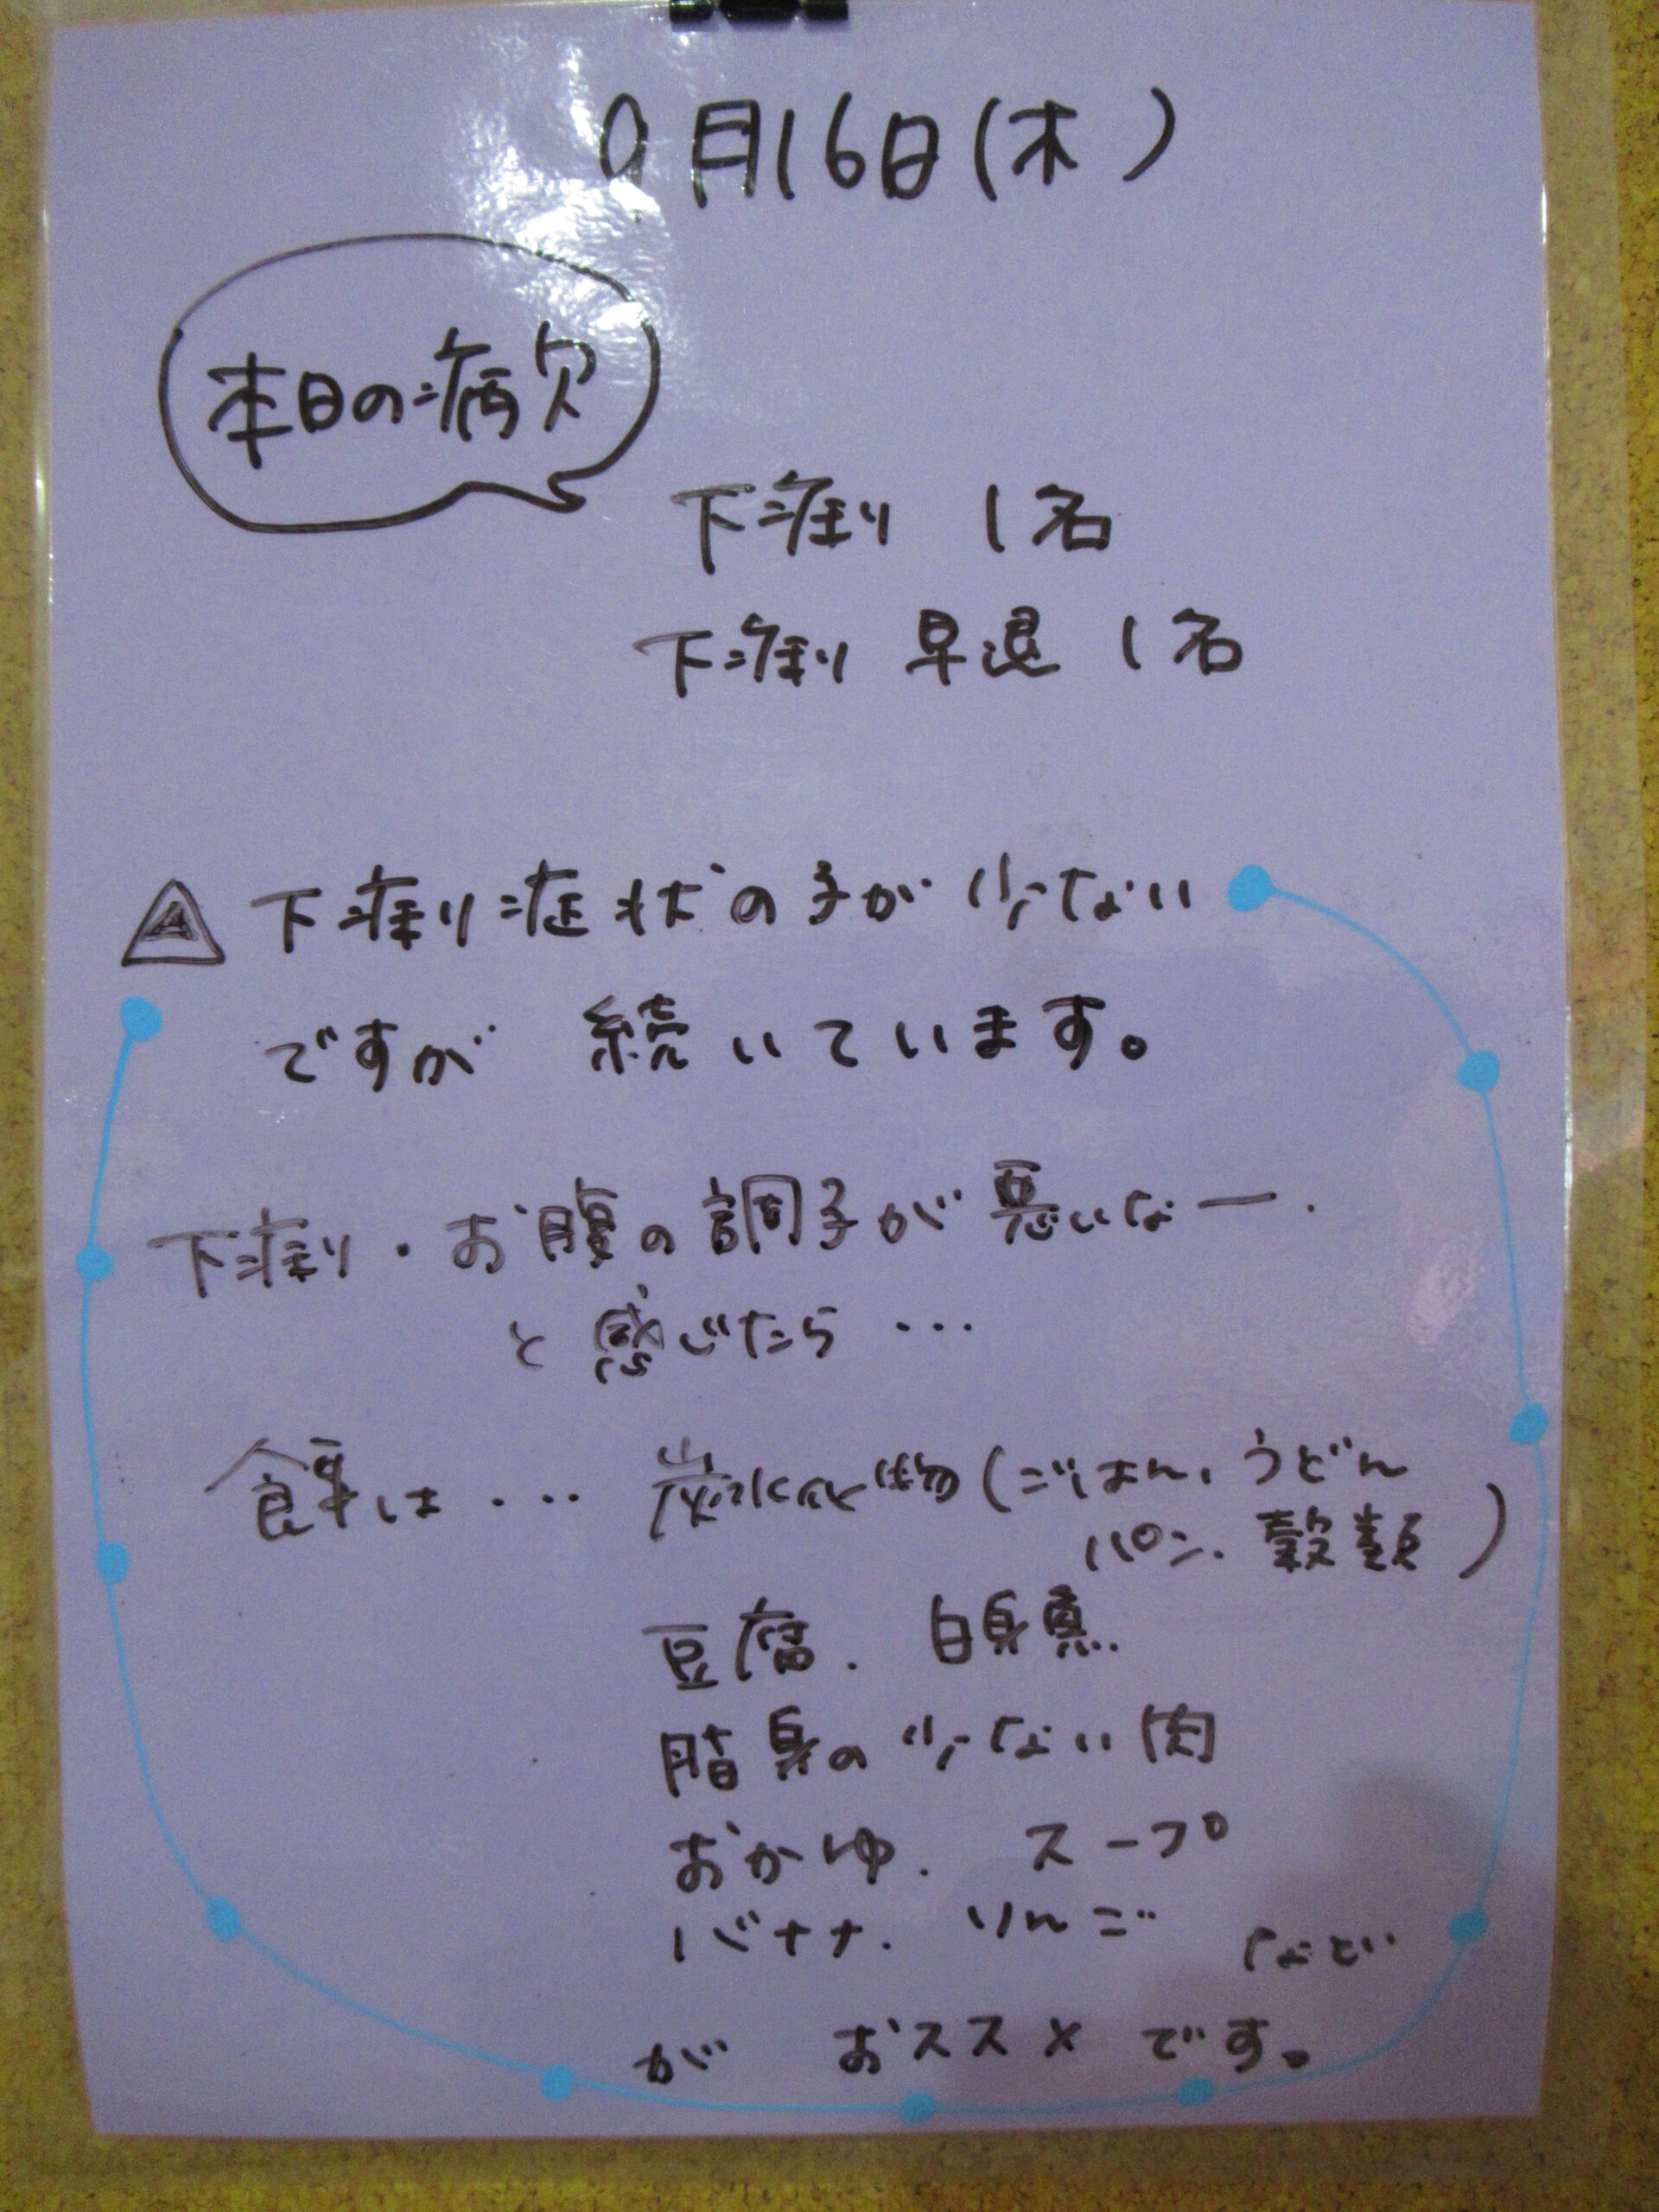 9月16日(木)
本日の病欠
下痢り 1名
下痢り 早退 1名
下痢り症状の子が少ない
ですが 続いています。
下痢り・お腹の調子が悪いなー.
と感じたら・・・
食事は・・・ 炭水化物(ごはん、うどん
パン、穀類)
豆腐、白身魚、
脂身の少ない肉
おかゆ、スープ
バナナ、りんご など
が おススメです。